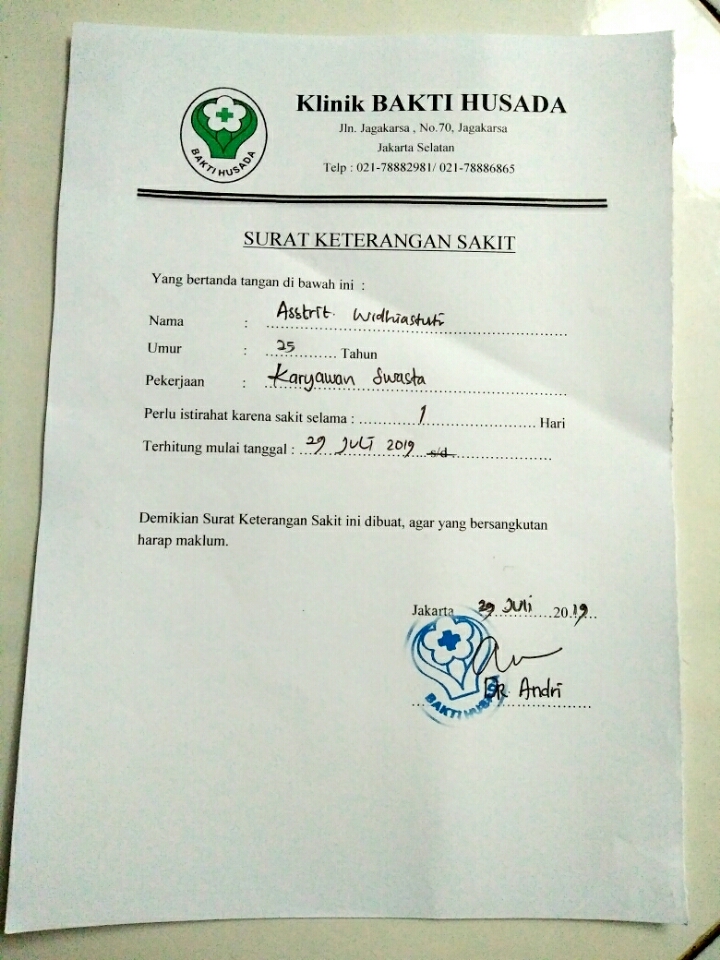 Klinik BAKTI HUSADA
Jln. Jagakarsa , No.70, Jagakarsa
Jakarta Selatan
Telp : 021-78882981/ 021-78886865
BAKTI HUSADA
SURAT KETERANGAN SAKIT
Yang bertanda tangan di bawah ini :
Nama : Asstrit. Widhiastuti
Umur : 25 Tahun
Pekerjaan : Karyawan Swasta
Perlu istirahat karena sakit selama : 1 Hari
Terhitung mulai tanggal : 29 Juli 2019 s/d
Demikian Surat Keterangan Sakit ini dibuat, agar yang bersangkutan
harap maklum.
Jakarta 29 Juli 2019
DR. Andri
BAKTI HUSADA